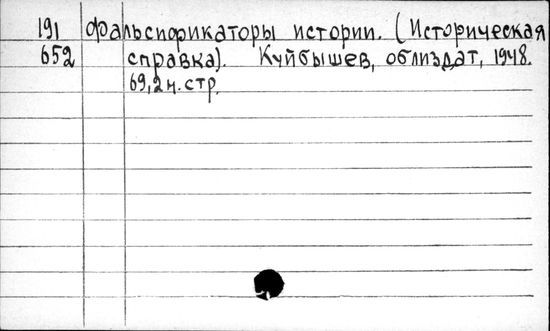 191 Фальсификаторы истории. (Историческая
652 справка). Куйбышев, облиздат, 1948.
69,2н.стр.